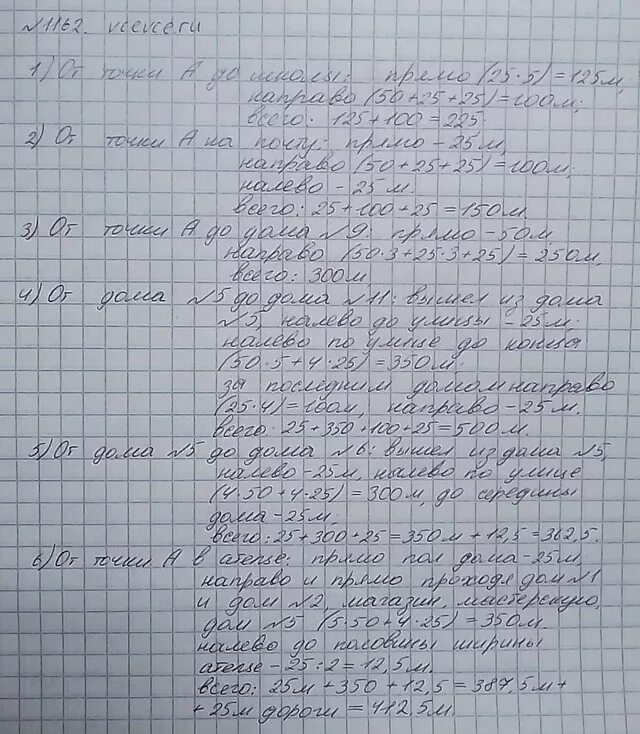 №1162. vcevcegu
1) От точки А до школы: прямо (25·5)=125м,
направо (50+25+25)=100м;
всего: 125+100=225.
2) От точки А на почту: прямо - 25м,
направо (50+25+25)=100м;
налево - 25 м.
всего: 25+100+25=150м
3) От точки А до дома №9: прямо - 50м,
направо (50·3+25·3+25)=250м,
всего: 300м
4) От дома №5 до дома №11: вышел из дома
№5, налево до улицы - 25м;
налево по улице до конца
(50·5+4·25)=350м.
за последним домом направо
(25·4)=100м, направо - 25м.
всего: 25+350+100+25=500м.
5) От дома №5 до дома №6: вышел из дома №5,
налево - 25м, нылево по улице
(4·50+4·25)=300м, до середины
дома - 25м;
всего: 25+300+25=350м+12,5=362,5.
6) От точки А в ателье: прямо пол дома - 25м,
направо и прямо проходя дом №1
и дом №2, магазин, мастерскую,
дом №5 (5·50+4·25)=350м.
налево до половины ширины
ателье - 25:2=12,5м.
всего: 25м+350+12,5=387,5м+
+25м дороги = 412,5м.